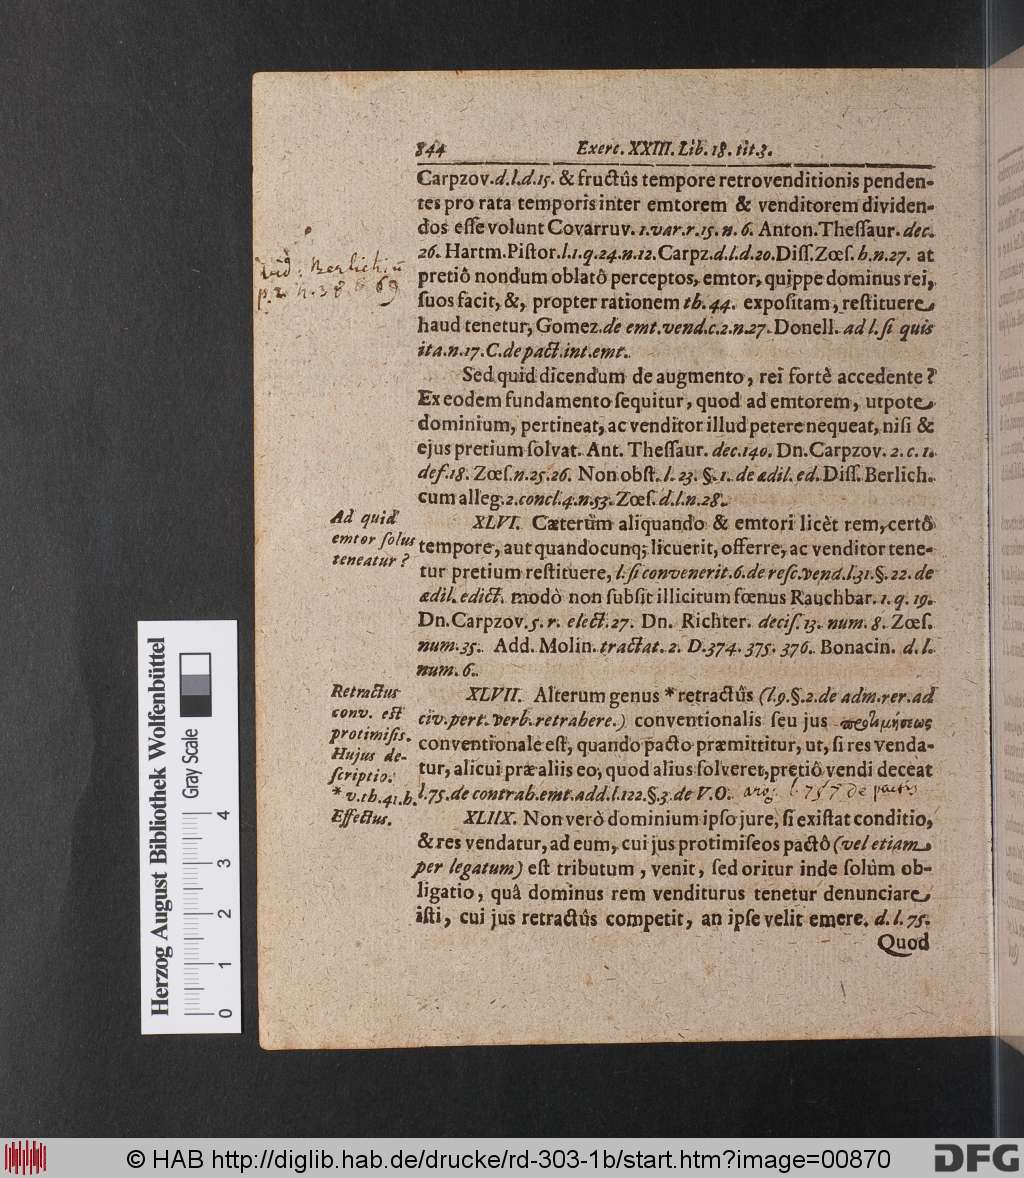 844 Exerc. XXIII. Lib. 18. tit. 3.
Carpzov. d. l. d. 15. & fructûs tempore retrovenditionis penden-
tes pro rata temporis inter emtorem & venditorem dividen-
dos esse volunt Covarruv. 1. var. r. 15. n. 6. Anton. Thessaur. dec.
26. Hartm. Pistor. l. 1. q. 24. n. 12. Carpz. d. l. d. 20. Diss. Zœs. h. n. 27. at
pretiô nondum oblatô perceptos, emtor, quippe dominus rei,
suos facit, &, propter rationem th. 44. expositam, restituere
haud tenetur, Gomez. de emt. vend. c. 2. n. 27. Donell. ad l. si quis
ita. n. 17. C. de pact. int. emt.
vid: Berlichiū
p. 2. n. 38. 69
Sed quid dicendum de augmento, rei fortè accedente?
Ex eodem fundamento sequitur, quod ad emtorem, utpote
dominium, pertineat, ac venditor illud petere nequeat, nisi &
ejus pretium solvat. Ant. Thessaur. dec. 140. Dn. Carpzov. 2. c. 1.
def. 18. Zœs. n. 25. 26. Non obst. l. 23. §. 1. de ædil. ed. Diss. Berlich.
cum alleg. 2. concl. 4. n. 53. Zœs. d. l. n. 28.
Ad quid
emtor solus
teneatur?
XLVI. Cæterùm aliquando & emtori licèt rem, certô
tempore, aut quandocunq; licuerit, offerre, ac venditor tene-
tur pretium restituere, l. si convenerit. 6. de resc. vend. l. 31. §. 22. de
ædil. edict. modò non subsit illicitum fœnus Rauchbar. 1. q. 19.
Dn. Carpzov. 5. r. elect. 27. Dn. Richter. decis. 13. num. 8. Zœs.
num. 35. Add. Molin. tractat. 2. D. 374. 375. 376. Bonacin. d. l.
num. 6.
Retractus
conv. est
protimisis.
Hujus de-
scriptio.
* v. th. 41. h.
XLVII. Alterum genus * retractûs (l. 9. §. 2. de adm. rer. ad
civ. pert. verb. retrahere.) conventionalis seu jus προτιμήσεως
conventionale est, quando pacto præmittitur, ut, si res venda-
tur, alicui præ aliis eo, quod alius solveret, pretiô vendi deceat
l. 75. de contrah. emt. add. l. 122. §. 3. de V. O. arg. l. 75 de pactis
Effectus.
XLIIX. Non verò dominium ipso jure, si existat conditio,
& res vendatur, ad eum, cui jus protimiseos pactô (vel etiam
per legatum) est tributum, venit, sed oritur inde solùm ob-
ligatio, quâ dominus rem venditurus tenetur denunciare
isti, cui jus retractûs competit, an ipse velit emere. d. l. 75.
Quod
Herzog August Bibliothek Wolfenbüttel
Gray Scale
0 1 2 3 4
© HAB http://diglib.hab.de/drucke/rd-303-1b/start.htm?image=00870
DFG